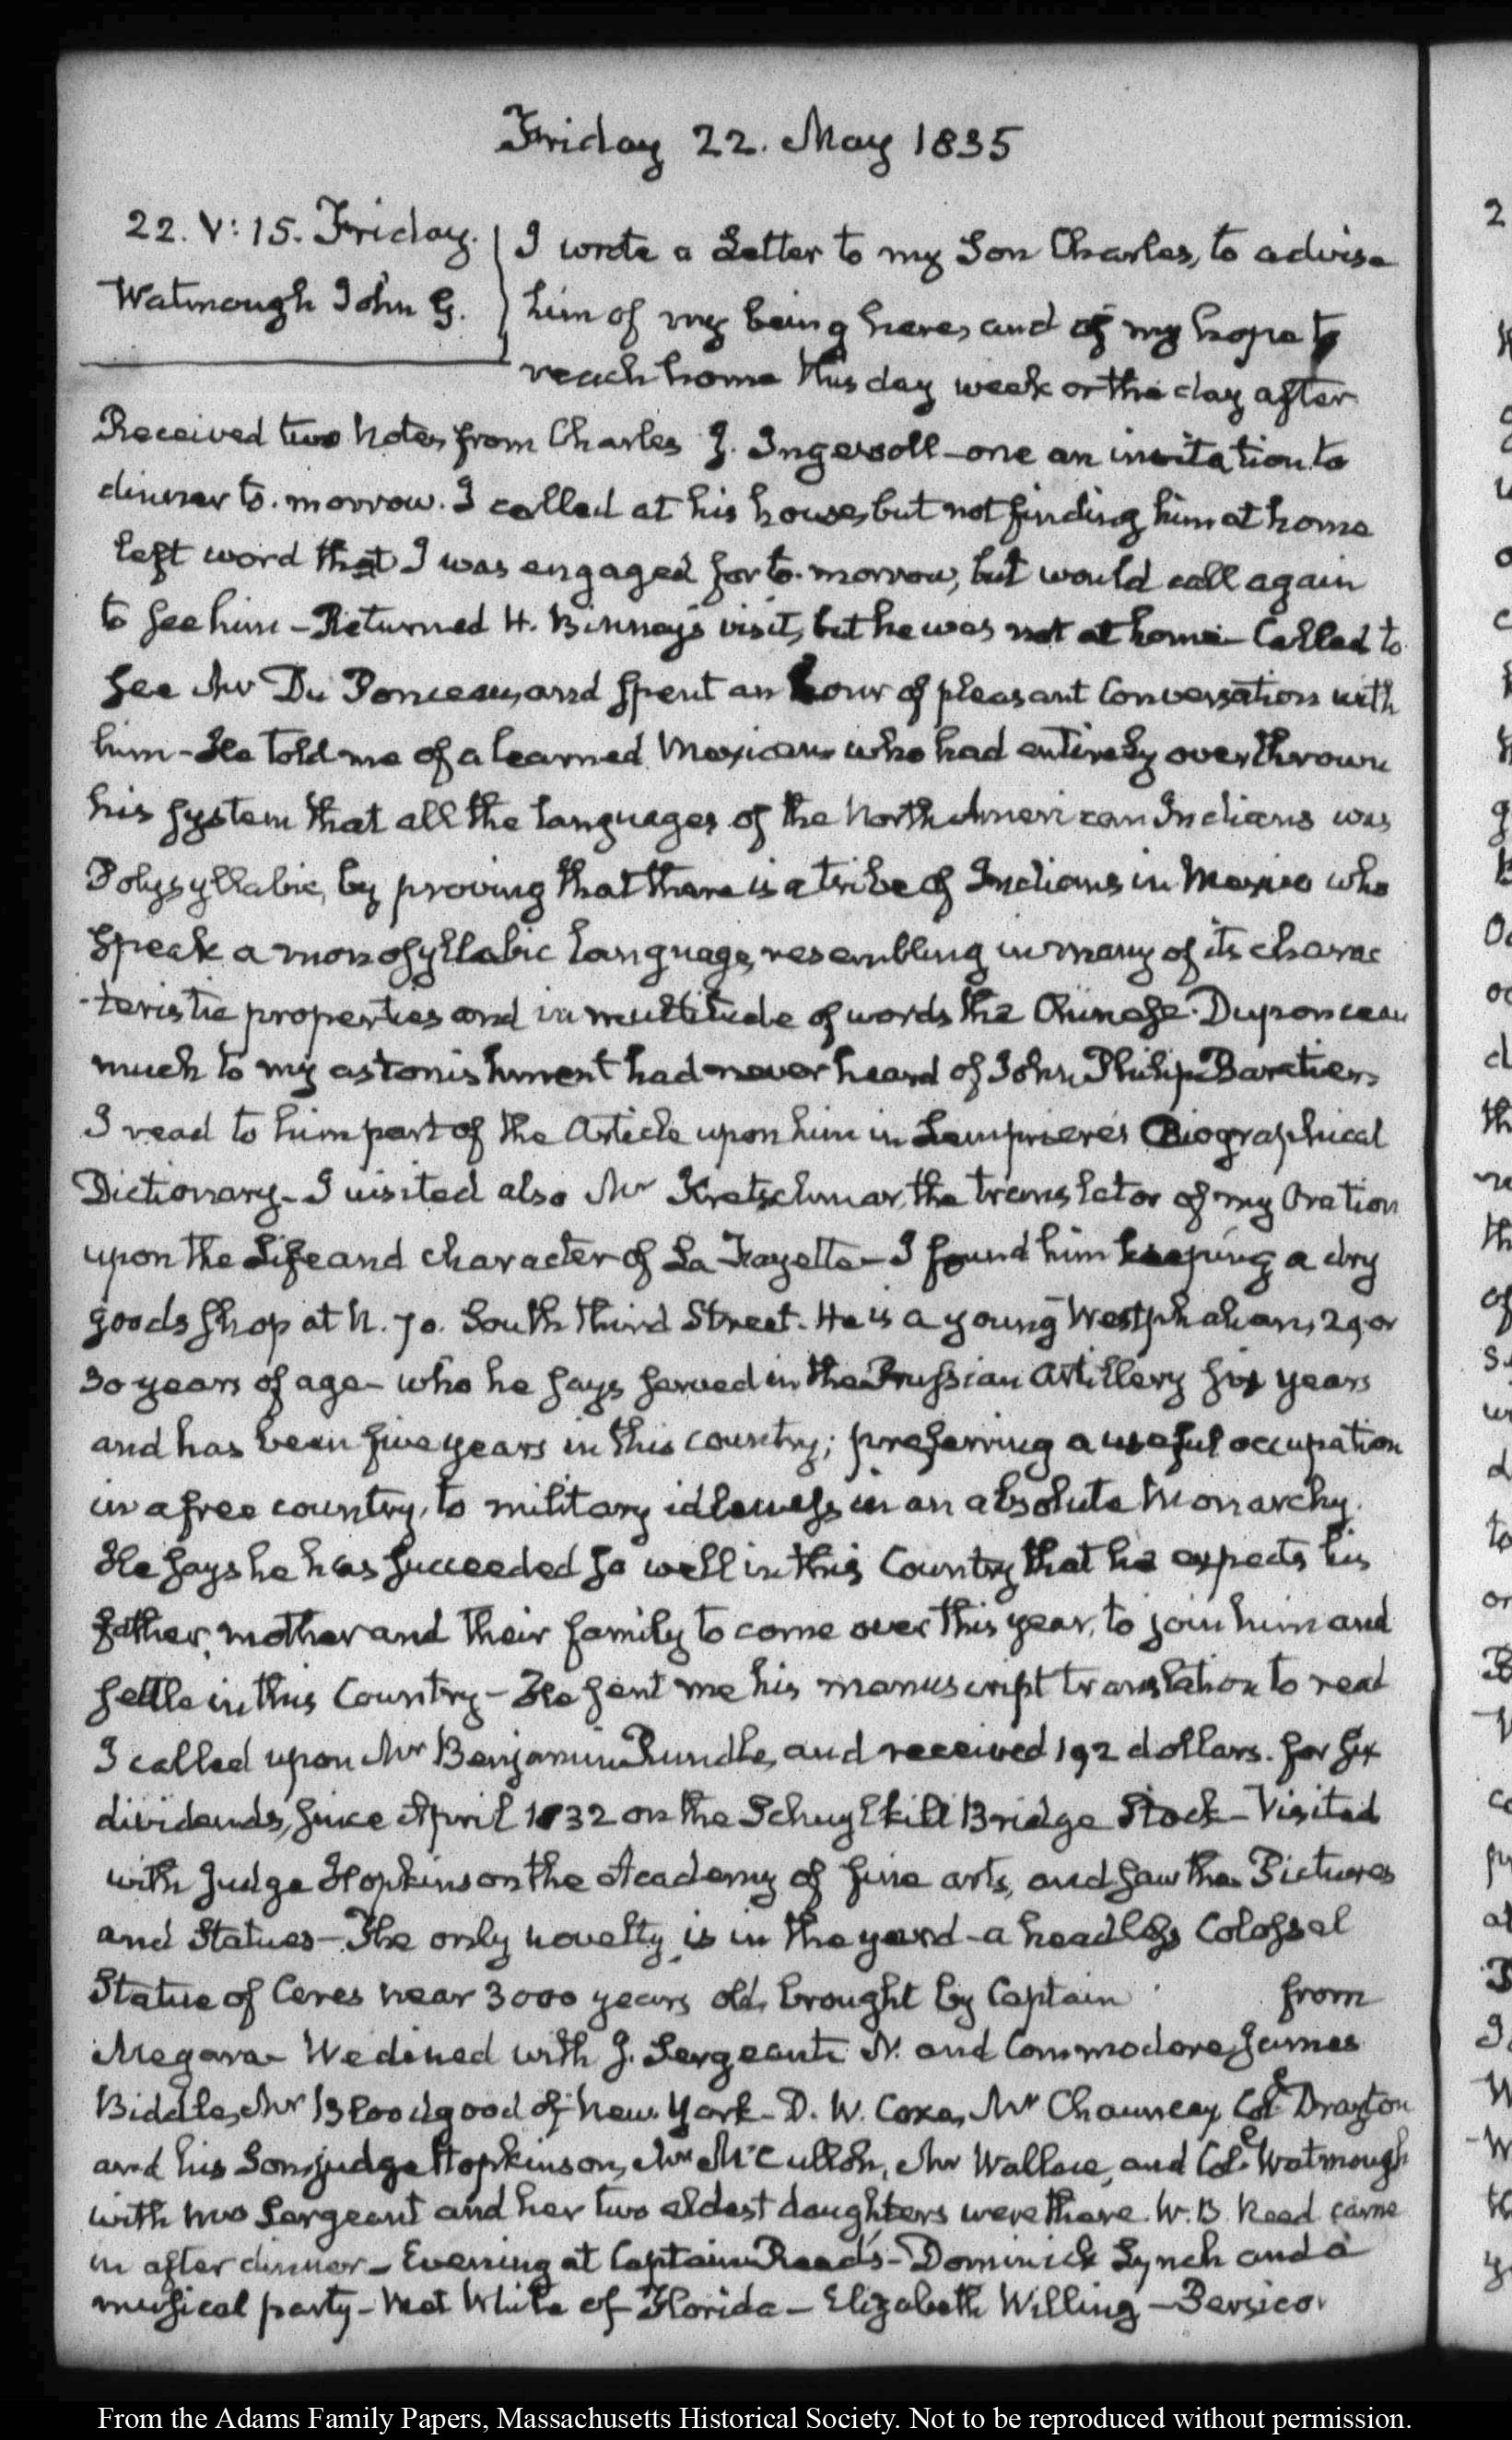 Friday 22. May 1835
22. V: 15. Friday.
Watmough John G.
I wrote a Letter to my Son Charles, to advise
him of my being here, and of my hope to
reach home this day week or the day after
Received two Notes from Charles J. Ingersoll - one an invitation to
dinner to-morrow. I called at his house, but not finding him at home
left word that I was engaged for to-morrow, but would call again
to see him - Returned H. Binney's visit, but he was not at home - Called to
see Mr Du Ponceau, and spent an hour of pleasant Conversation with
him - He told me of a learned Mexican who had entirely overthrown
his system that all the languages of the North American Indians was
Polysyllabic, by proving that there is a tribe of Indians in Mexico who
speak a monosyllabic language, resembling in many of its charac
-teristic properties and in multitude of words the Chinese. Duponceau
much to my astonishment had never heard of John Philip Baratier.
I read to him part of the Article upon him in Lempriere's Biographical
Dictionary - I visited also Mr Kretschmar, the translator of my Oration
upon the Life and character of La Fayette - I found him keeping a dry
goods shop at N. 70. South third Street. He is a young Westphalian, 29 or
30 years of age - who he says served in the Prussian Artillery six years
and has been five years in this country; preferring a useful occupation
in a free country, to military idleness in an absolute Monarchy.
He says he has succeeded so well in this Country that he expects his
father, mother and their family to come over this year, to join him and
settle in this Country - He sent me his manuscript translation to read
I called upon Mr Benjamin Rundle, and received 192 dollars. for six
dividends, since April 1832 on the Schuylkill Bridge Stock - Visited
with Judge Hopkinson the Academy of fine arts, and saw the Pictures
and Statues - The only novelty is in the yard - a headless Colossal
Statue of Ceres near 3000 years old, brought by Captain from
Megara - We dined with J. Sergeant. N. and Commodore James
Biddle, Mr Bloodgood of New York - D. W. Coxe, Mr Chauncey, Col. Drayton
and his Son, judge Hopkinson, Mr McCulloh, Mr Wallace, and Col. Watmough
with Mrs Sergeant and her two eldest daughters were there. W. B. Reed came
in after dinner - Evening at Captain Read's - Dominick Lynch and a
musical party - Met White of Florida - Elizabeth Willing - Persico.
From the Adams Family Papers, Massachusetts Historical Society. Not to be reproduced without permission.